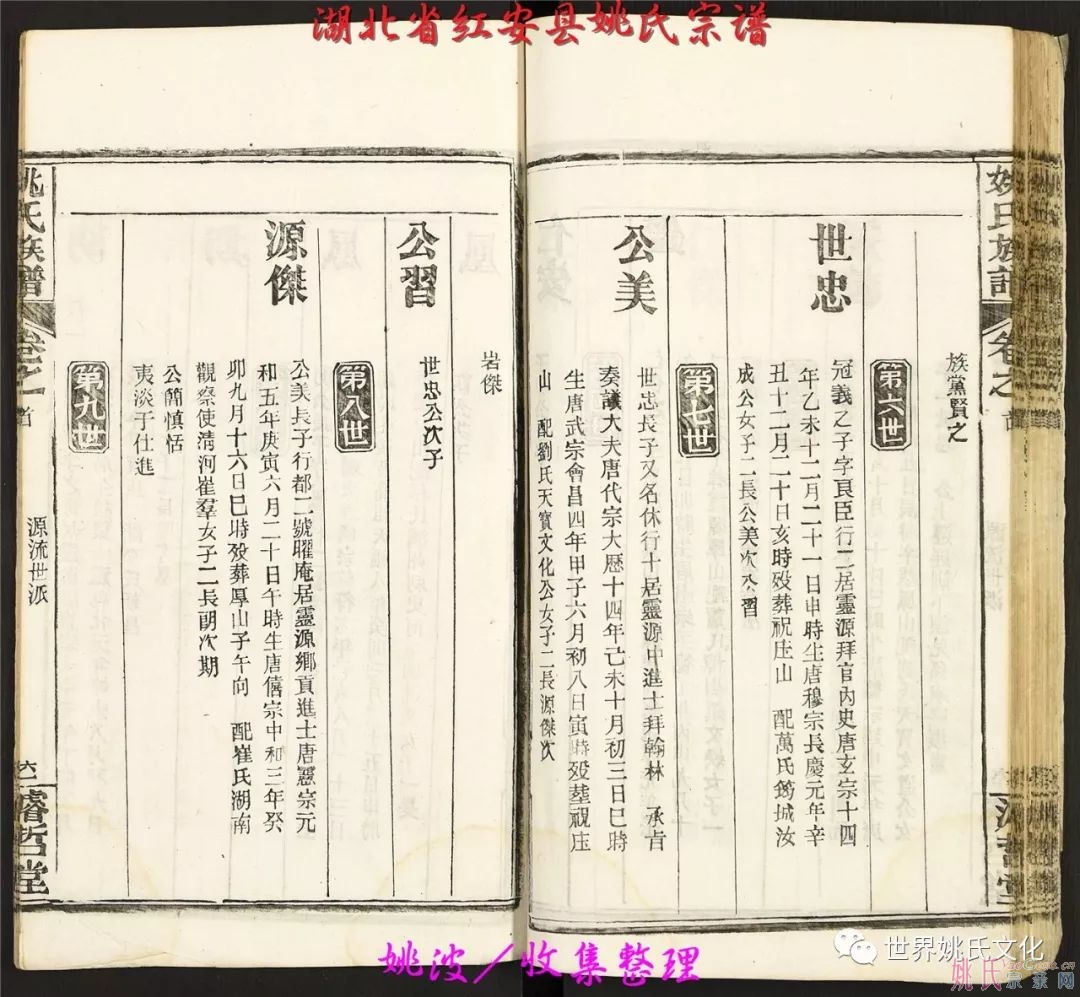 湖北省红安县姚氏宗谱
姚氏族譜
卷之一
首
族黨賢之
第六世
世忠
冠義之子字良臣行二居靈源拜官內史唐玄宗十四
年乙未十二月二十一日申時生唐穆宗長慶元年辛
丑十二月二十日亥時殁葬祝庄山 配萬氏鄱城汝
成公女子二長公美次公習
第七世
公美
世忠長子又名休行十居靈源中進士拜翰林 承肯
奏議大夫唐代宗大歷十四年己未十月初三日巳時
生唐武宗會昌四年甲子六月初八日寅時殁塟祝庄
山 配劉氏天寶文化公女子二長源傑次
岩傑
公習
世忠公次子
第八世
源傑
公美長子行都二號曜庵居靈源鄉貢進士唐憲宗元
和五年庚寅六月二十日午時生唐僖宗中和三年癸
卯九月十六日巳時殁葬厚山子午向 配崔氏湖南
觀察使清河崔羣女子二長朗次期
公簡慎恬
夷淡于仕進
第九世
姚氏族譜
卷之一
首
源流世派
六一
濬哲堂
姚波／收集整理
世界姚氏文化
姚氏宗亲网